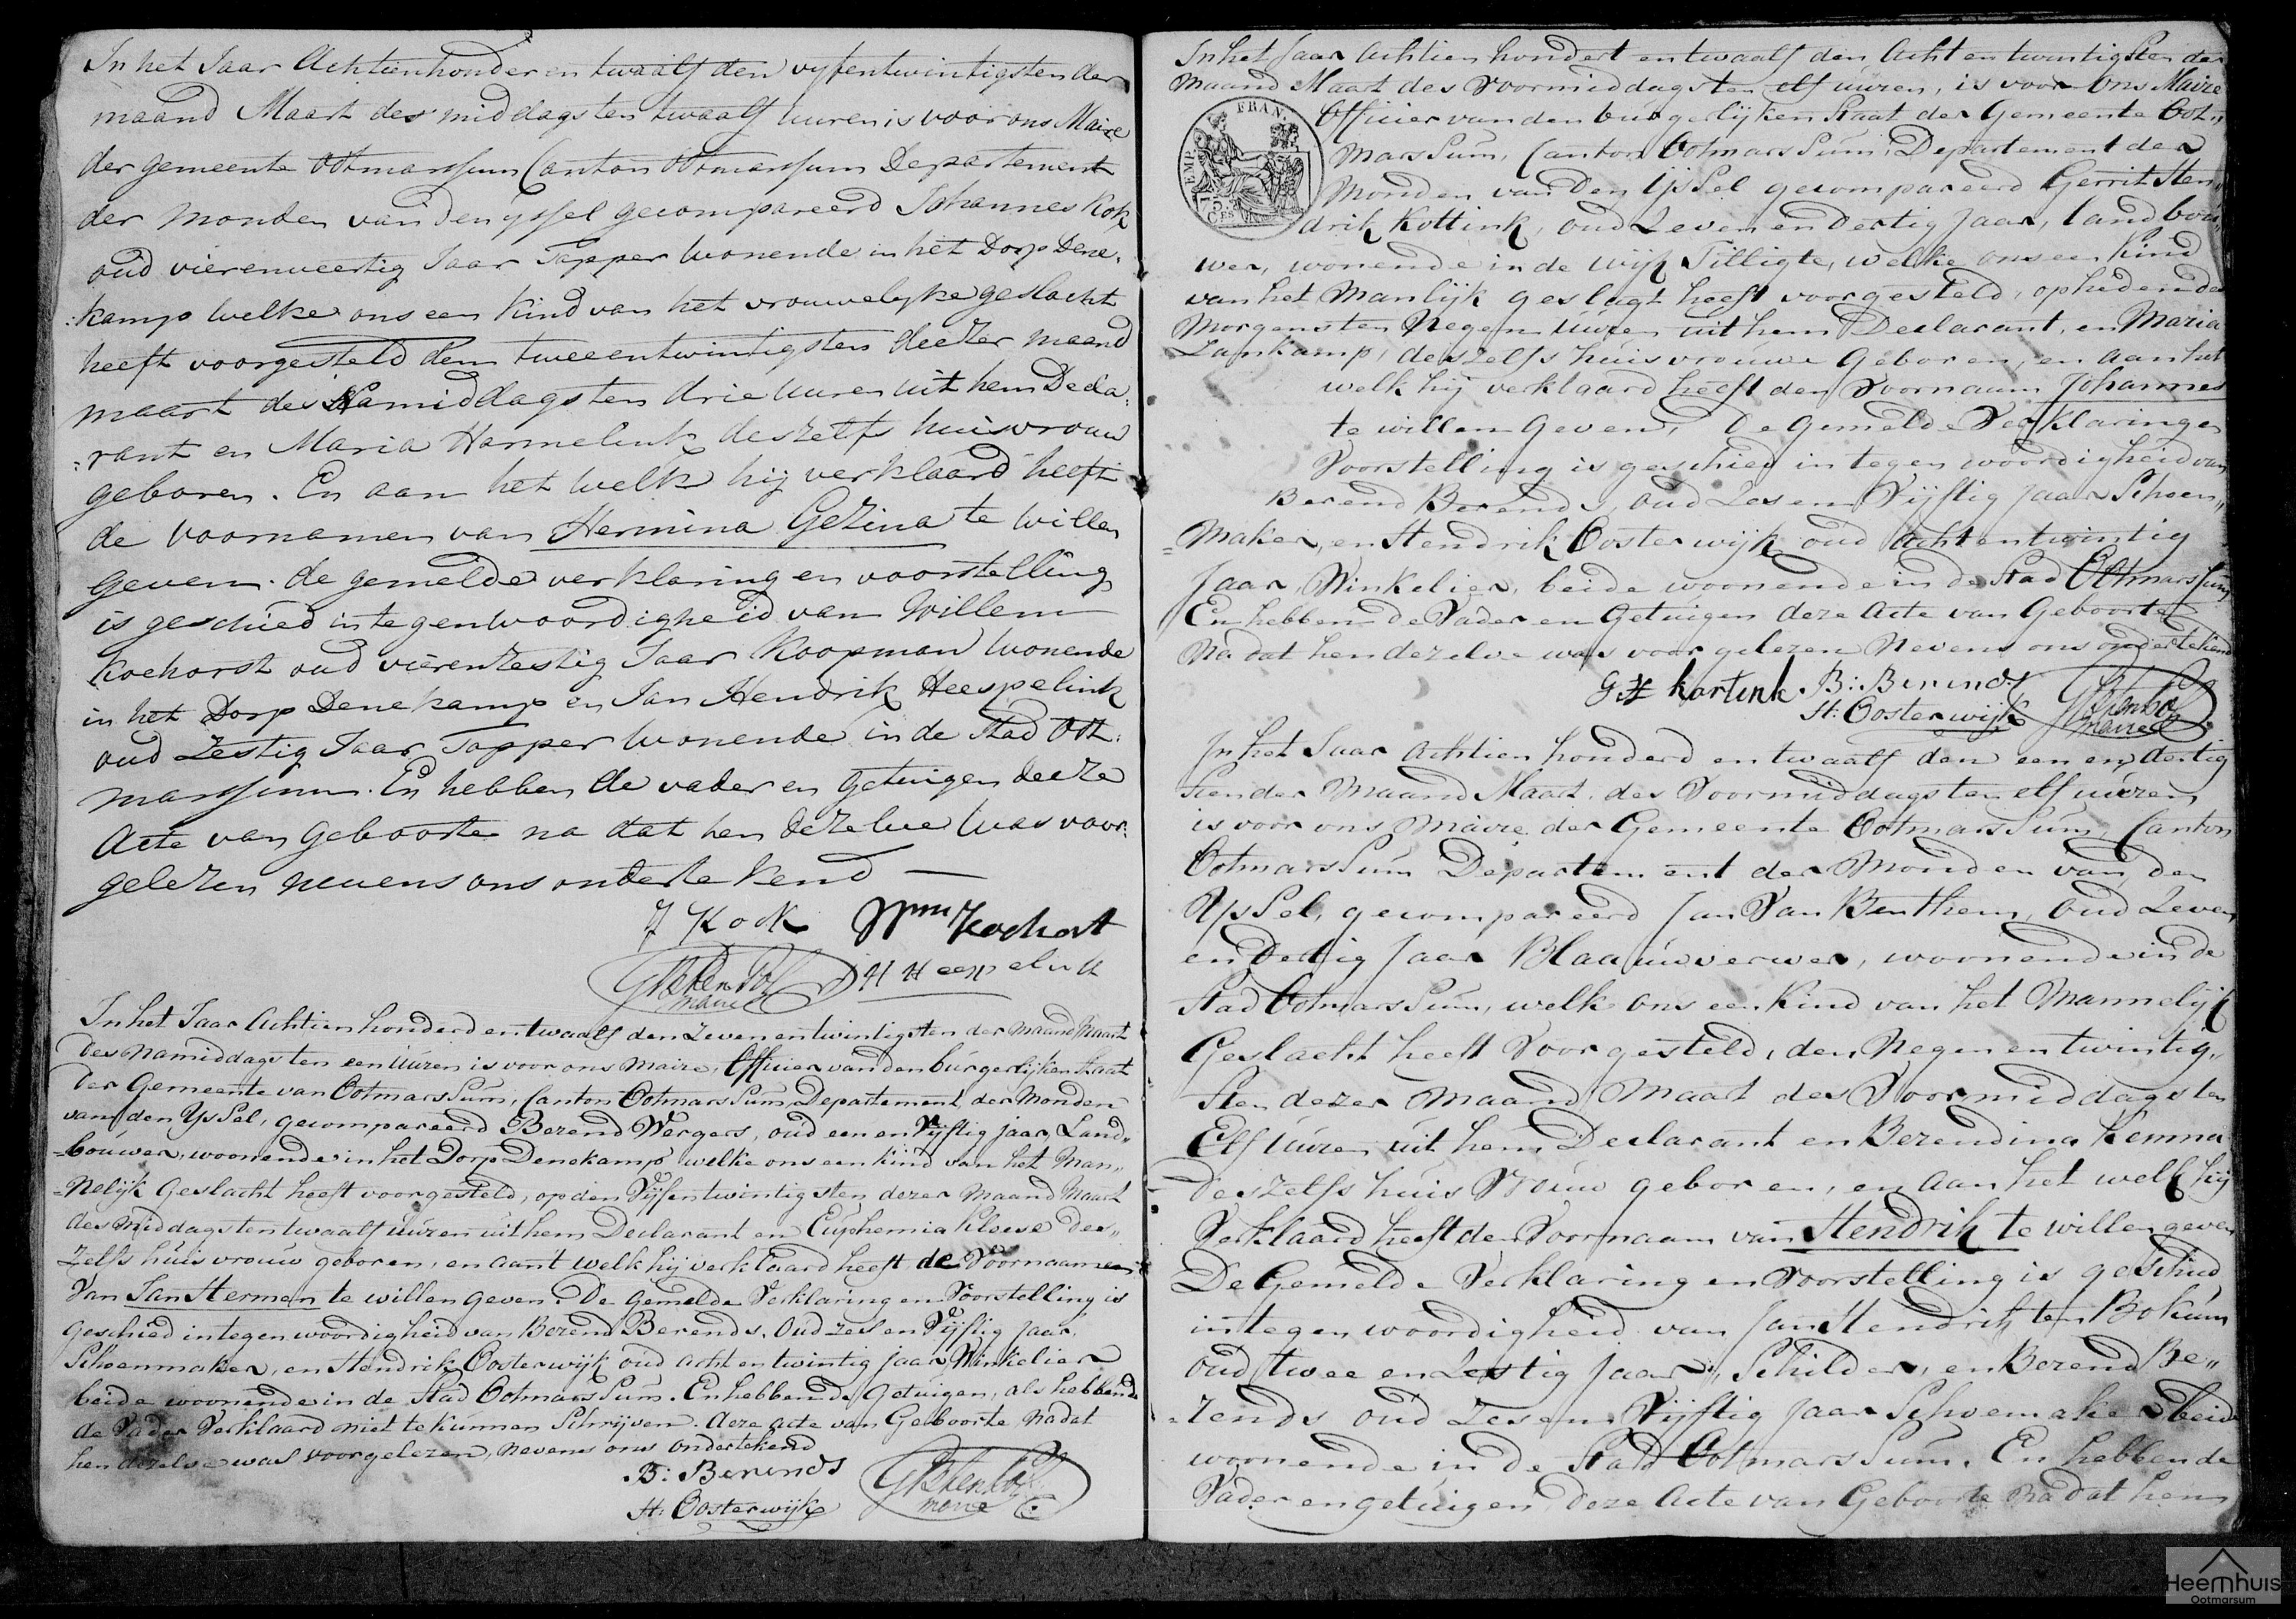 In het Jaar Achtienhonder en twaalf den vyfentwintigsten der
maand Maart des middags ten twaalf uuren is voor ons Maire
der gemeente Ootmarssum Canton Ootmarssum Departement
der Monden van den yssel gecompareerd Johannes Kok
oud vierenveertig Jaar Tapper wonende in het Dorp Dene,
:kamp welke ons een kind van het vrouwelyke geslacht
heeft voorgesteld den tweeentwintigsten deezer maand
maart des Namiddags ten drie uuren uit hem Decla,
:rant en Maria Harmelink deszelfs huisvrouw
geboren. En aan het welk hij verklaard heeft
de voornamen van Hermina Gezina te willen
geven. de gemelde verklaring en voorstelling
is geschied in tegenwoordigheid van Willem
Koehorst oud vierenzestig Jaar Koopman wonende
in het Dorp Denekamp en Jan Hendrik Heespelink
oud Zestig Jaar Tapper wonende in de Stad Oot:
marssum. En hebben de vader en getuigen deeze
Acte van Geboorte na dat hen dezelve was voor:
gelezen nevens ons ondertekend —
J Kock Wm Koehorst
maire J H Heespelink
In het Jaar Achtien honderd en twaalf den Zeven en twintigsten der maand Maart
des namiddags ten een uuren is voor ons Maire, Officier van den burgerlijken Staat
der Gemeente van OotmarsSum, Canton OotmarsSum, Departement der Monden
van den YsSel, gecompareerd Berend Wergers, oud een en Vijftig jaar, Land„
=bouwer, woonende in het Dorp Denekamp welke ons een kind van het Man„
=nelijk Geslacht heeft voorgesteld, op den Vijfentwintigsten dezer maand Maart
des middags ten twaalf uuren uit hem Declarant en Euphemia Kleese des„
zelfs huisvrouw geboren, en aant welk hij verklaard heeft de Voornaamen
Van Jan Hermen te willen geven. De gemelde Verklaring en Voorstelling is
geschied in tegenwoordigheid van Berend Berends, Oud zes en Vijftig Jaar,
Schoenmaker, en Hendrik Oosterwijk oud acht en twintig jaar, Winkelier
beide woonende in de Stad OotmarsSum. En hebben de Getuigen, als hebbende
de Vader Verklaard niet te kunnen Schrijven. deze acte van Geboorte Nadat
hen dezelve was voorgelezen, Nevens ons ondertekend
B: Berends
H: Oosterwijk maire
In het Jaar Achtien hondert en twaalf den Acht en twintigsten der
Maand Maart des Voormiddags ten elf uuren, is voor Ons Maire
Officier van den burgerlijken Staat der Gemeente Oot„
MarsSum, Canton OotmarsSum, Departement der
Monden van den IjsSel gecompareerd Gerrit Hen„
drik Kottink, oud Zeven en dertig Jaar, landbou„
wer, wonende in de wijk Tilligte, welke ons een kind
van het Manlijk geslagt heeft voorgesteld, op heden des
Morgens ten Negen uuren uit hem Declarant, en Maria
Lankamp, deszelfs huisvrouwe Geboren, en aan het
welk hij verklaard heeft den Voornaam Johannes
te willen Geven, De Gemelde Verklaring en
Voorstelling is geschied in tegenwoordigheid van
Berend Berends, oud Zes en Vijftig Jaar Schoen„
=Maker, en Hendrik Oosterwijk oud Acht en twintig
Jaar, Winkelier, beide woonende in de Stad OotmarsSum
En hebben de Vader en Getuigen deze Acte van Geboorte
Na dat hen dezelve was voorgelezen Nevens ons ondertekend
GH kortink B: Berends
H: Oosterwijk maire
In het Jaar Achtien honderd en twaalf den een en dertig
sten der Maand Maart, des Voormiddags ten elf uuren
is voor ons Maire der Gemeente OotmarsSum, Canton
OotmarsSum Departement der Monden van den
YsSel, gecompareerd Jan Van Benthem, Oud Zeven
en Dertig Jaar Blaauwverwer, woonende in de
Stad OotmarsSum, welke ons een Kind van het Mannelijk
Geslacht heeft Voorgesteld, den Negen en twintig„
Sten dezer Maand Maart des Voormiddags ten
Elf uuren uit hem Declarant en Berendina Kemna
deszelfs huis Vrouw geboren, en aan het welk hij
Verklaard heeft den Voornaam van Hendrik te willen geven
De Gemelde Verklaring en Voorstelling is geschied
in tegenwoordigheid van Jan Hendrik ten Bokum
oud twee en Zestig Jaar, Schilder, en Berend Be„
=rends oud zes en Vijftig Jaar Schoemaker beide
woonende in de Stad OotmarsSum. En hebben de
Vader en getuigen deze Acte van Geboorte Nadat hem
FRAN.
EMP.
Heemhuis
Ootmarsum